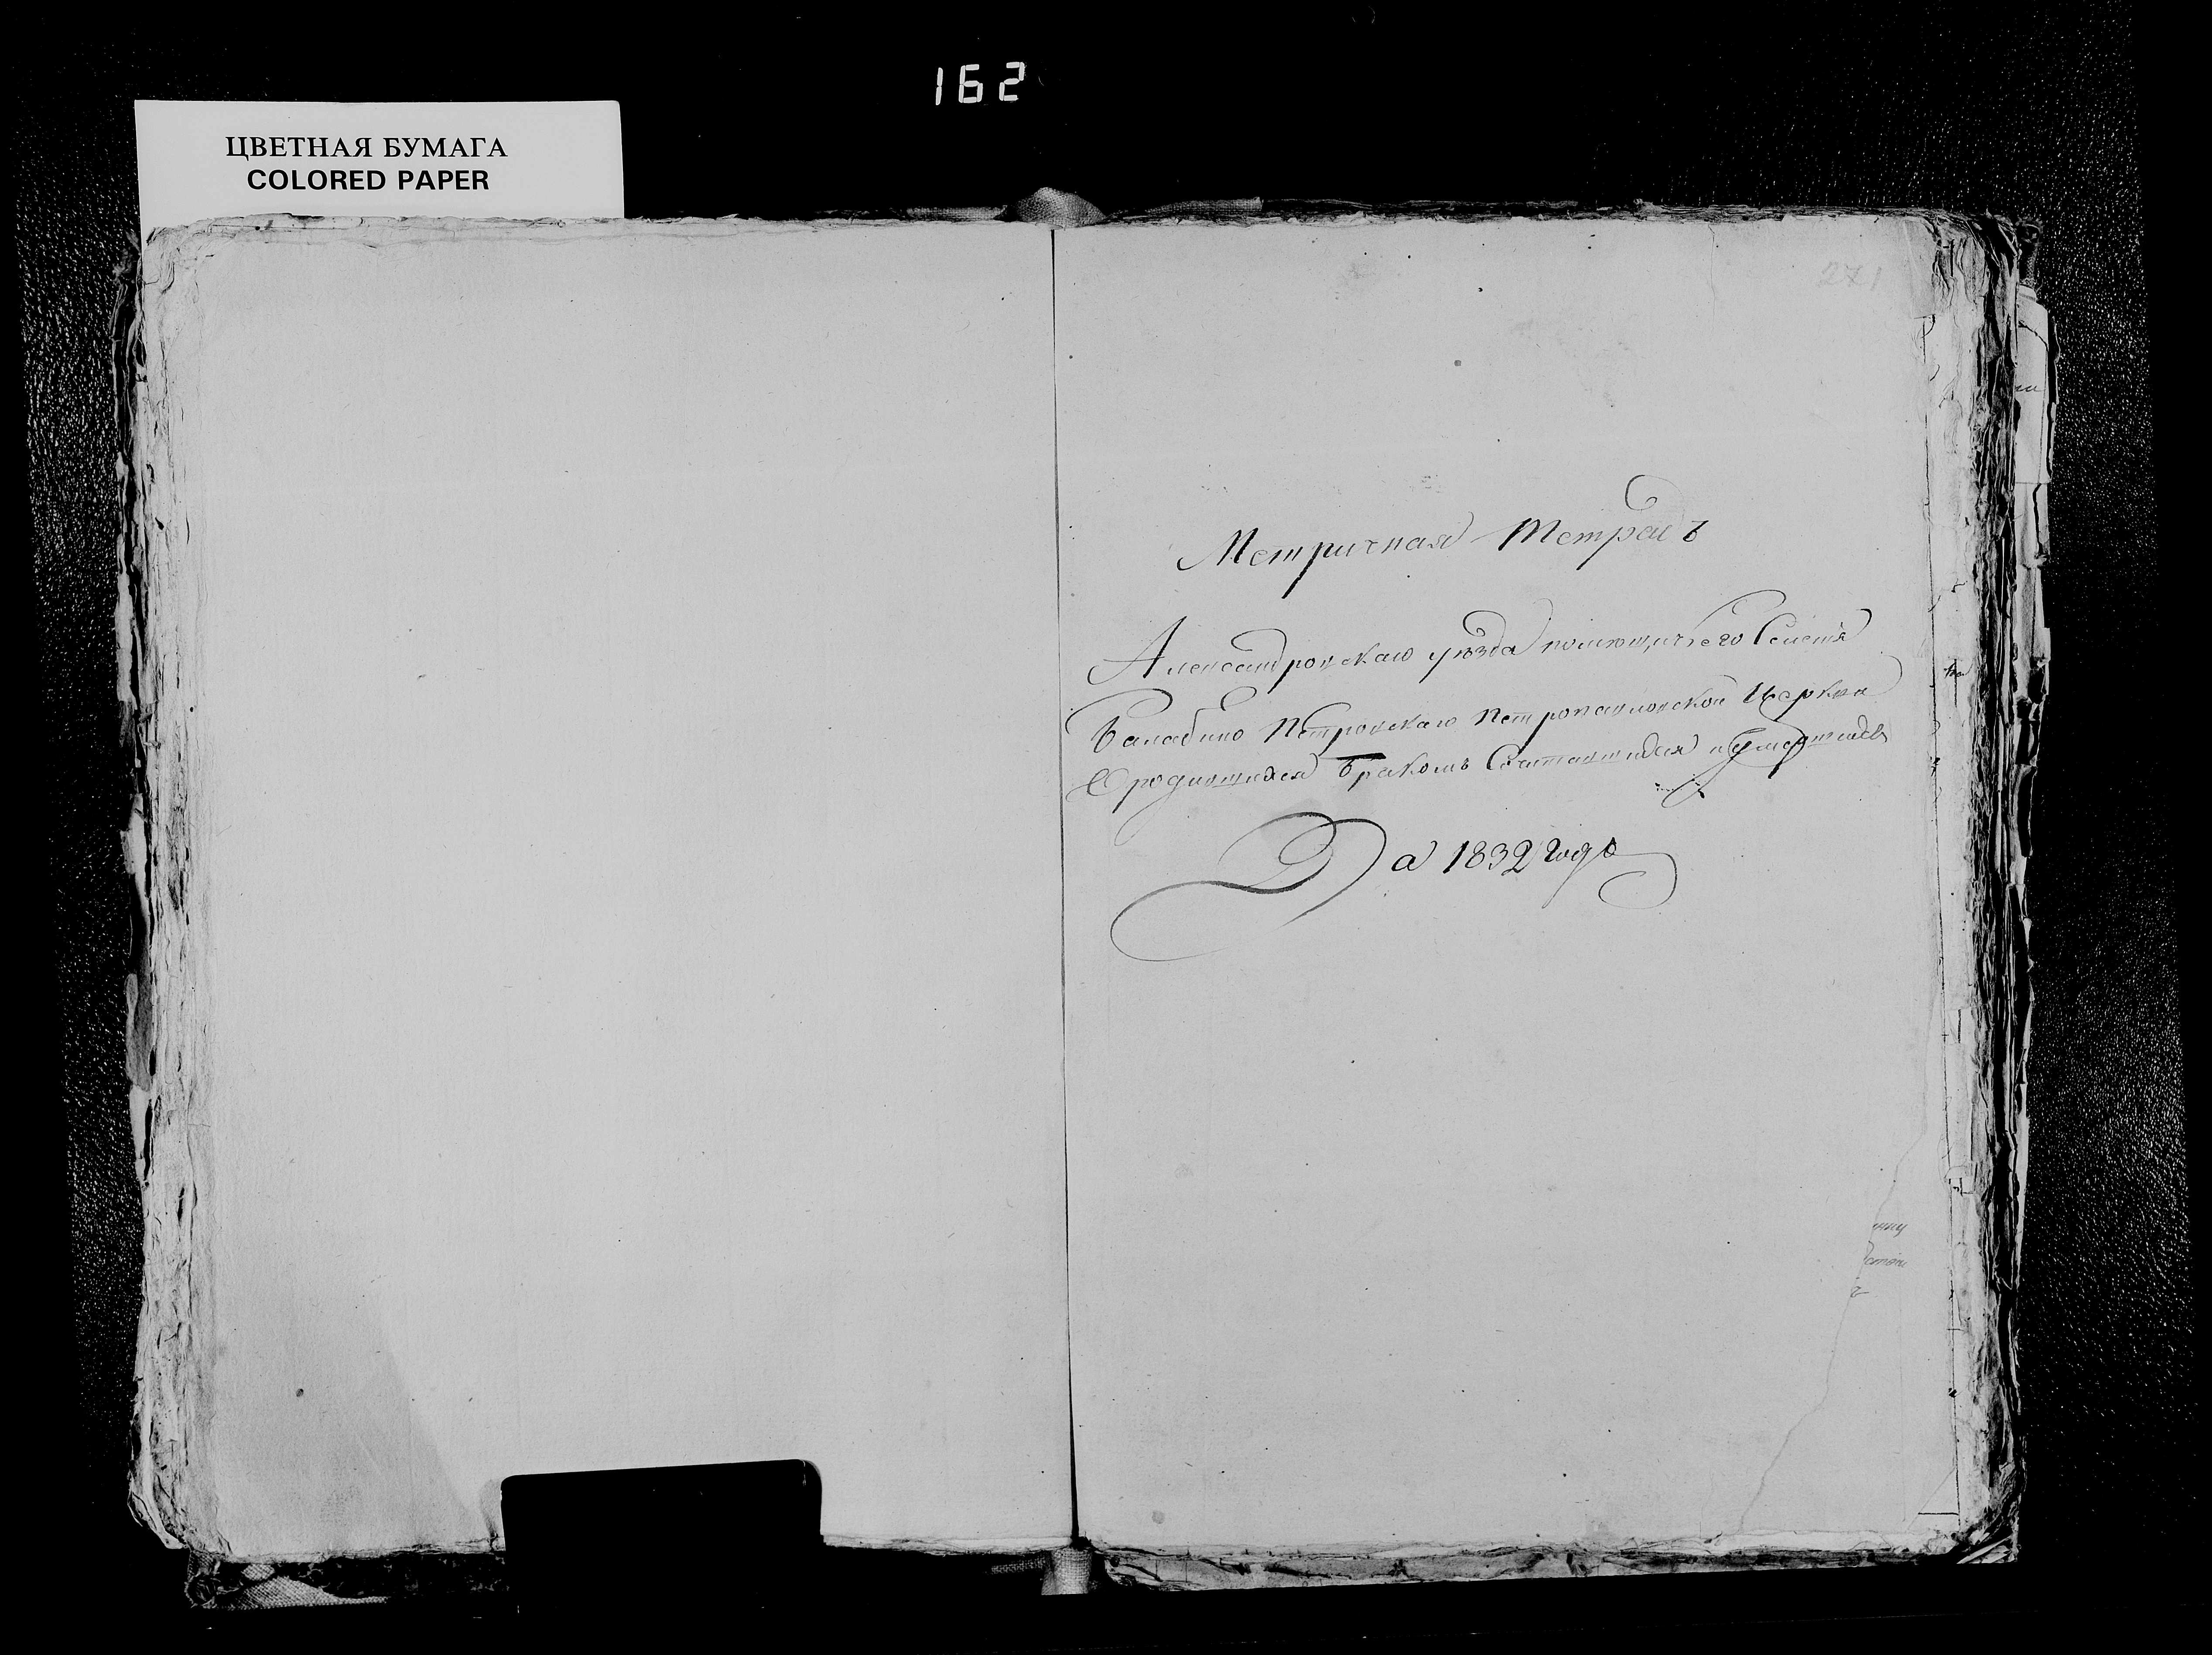 162
ЦВЕТНАЯ БУМАГА
COLORED PAPER
271
Метричная Тетрадь
Александровскаго уѣзда помющичьего Селенія
Балабино Петровскаго Петропавловской Церкви
О родившихся бракомъ Сочтавшихся и Умершихъ
За 1832 годъ